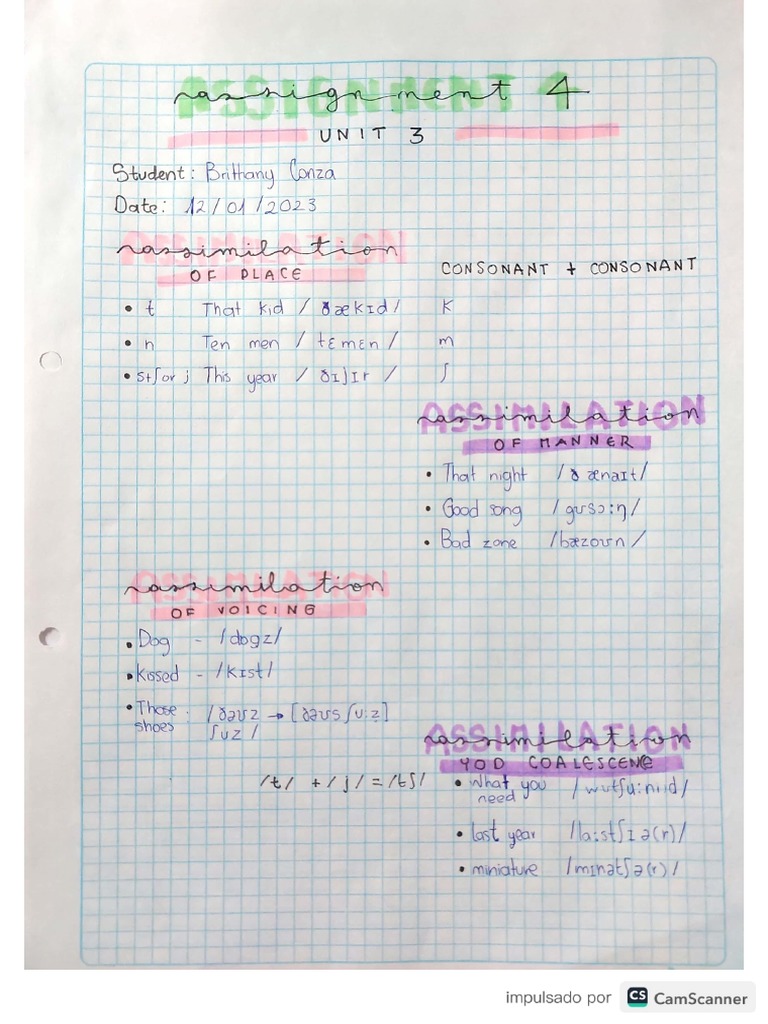 ASSIGNMENT 4
assignment
UNIT 3
Student: Brittany Conza
Date: 12/01/2023
ASSIMILATION
assimilation
OF PLACE
CONSONANT + CONSONANT
• t That kid / ðækɪd / K
• n Ten men / tɛmɛn / m
• s+ʃ or j This year / ðɪʃɪr / ʃ
ASSIMILATION
assimilation
OF MANNER
• That night /ðænaɪt/
• Good song /gʊsɔːŋ/
• Bad zone /bæzoʊn/
ASSIMILATION
assimilation
OF VOICING
• Dog - /dɒgz/
• Kissed - /kɪst/
• Those shoes /ðəʊz ʃuz/ → [ðəʊs ʃuːz]
ASSIMILATION
assimilation
YOD COALESCENE
/t/ + /j/ = /tʃ/
• What you need /wɒtʃuːniːd/
• last year /laːstʃɪə(r)/
• miniature /mɪnətʃə(r)/
impulsado por CS CamScanner